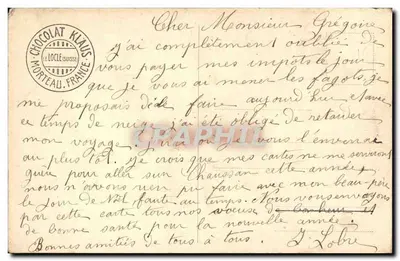 CHOCOLAT KLAUS
LE LOCLE (SUISSE)
MORTEAU. FRANCE
Cher Monsieur Grégoire
j'ai complètement oublié de
vous payer mes impôts le jour
que je vous ai mener les fagots, je
me proposais de le faire aujourd'hui et avec
ce temps de neige j'ai été obligé de retarder
mon voyage, j'irai ou je vous l'enverrai
au plus tôt. je crois que mes cartes ne me servent
guère pour aller sur Chaussan cette année
nous n'avons rien pu faire avec mon beau-père
le jour de Noël faute au temps. Nous vous envoyons
par cette carte tous nos voeux de bonheur et
de bonne santé pour la nouvelle année.
Bonnes amitiés de tous à tous. J. Lobre